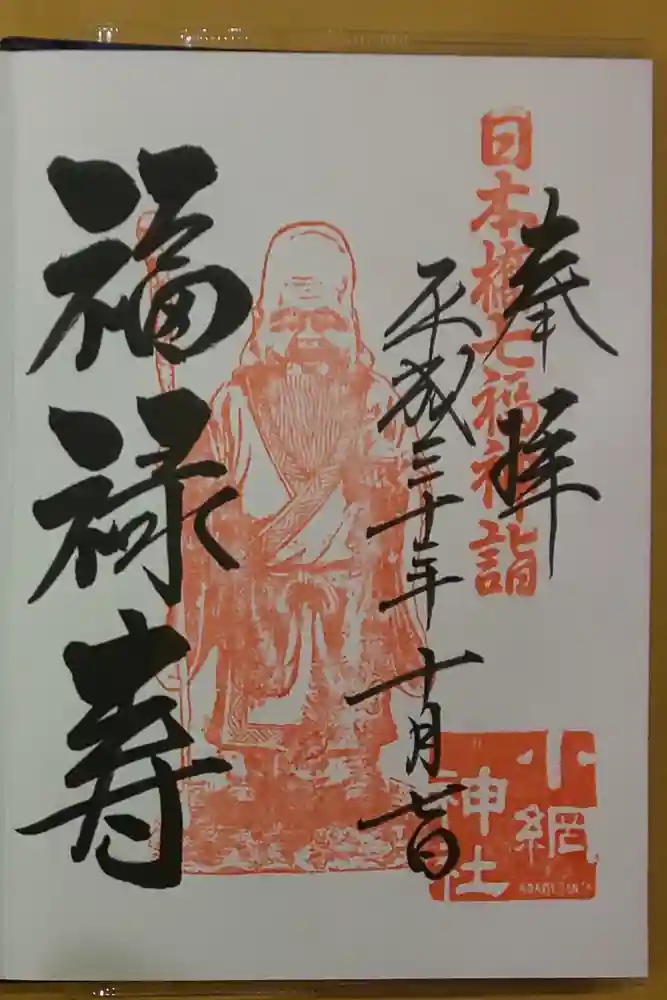 奉拝
日本橋七福神詣
平成三十年十月七日
小網
神社
福禄寿